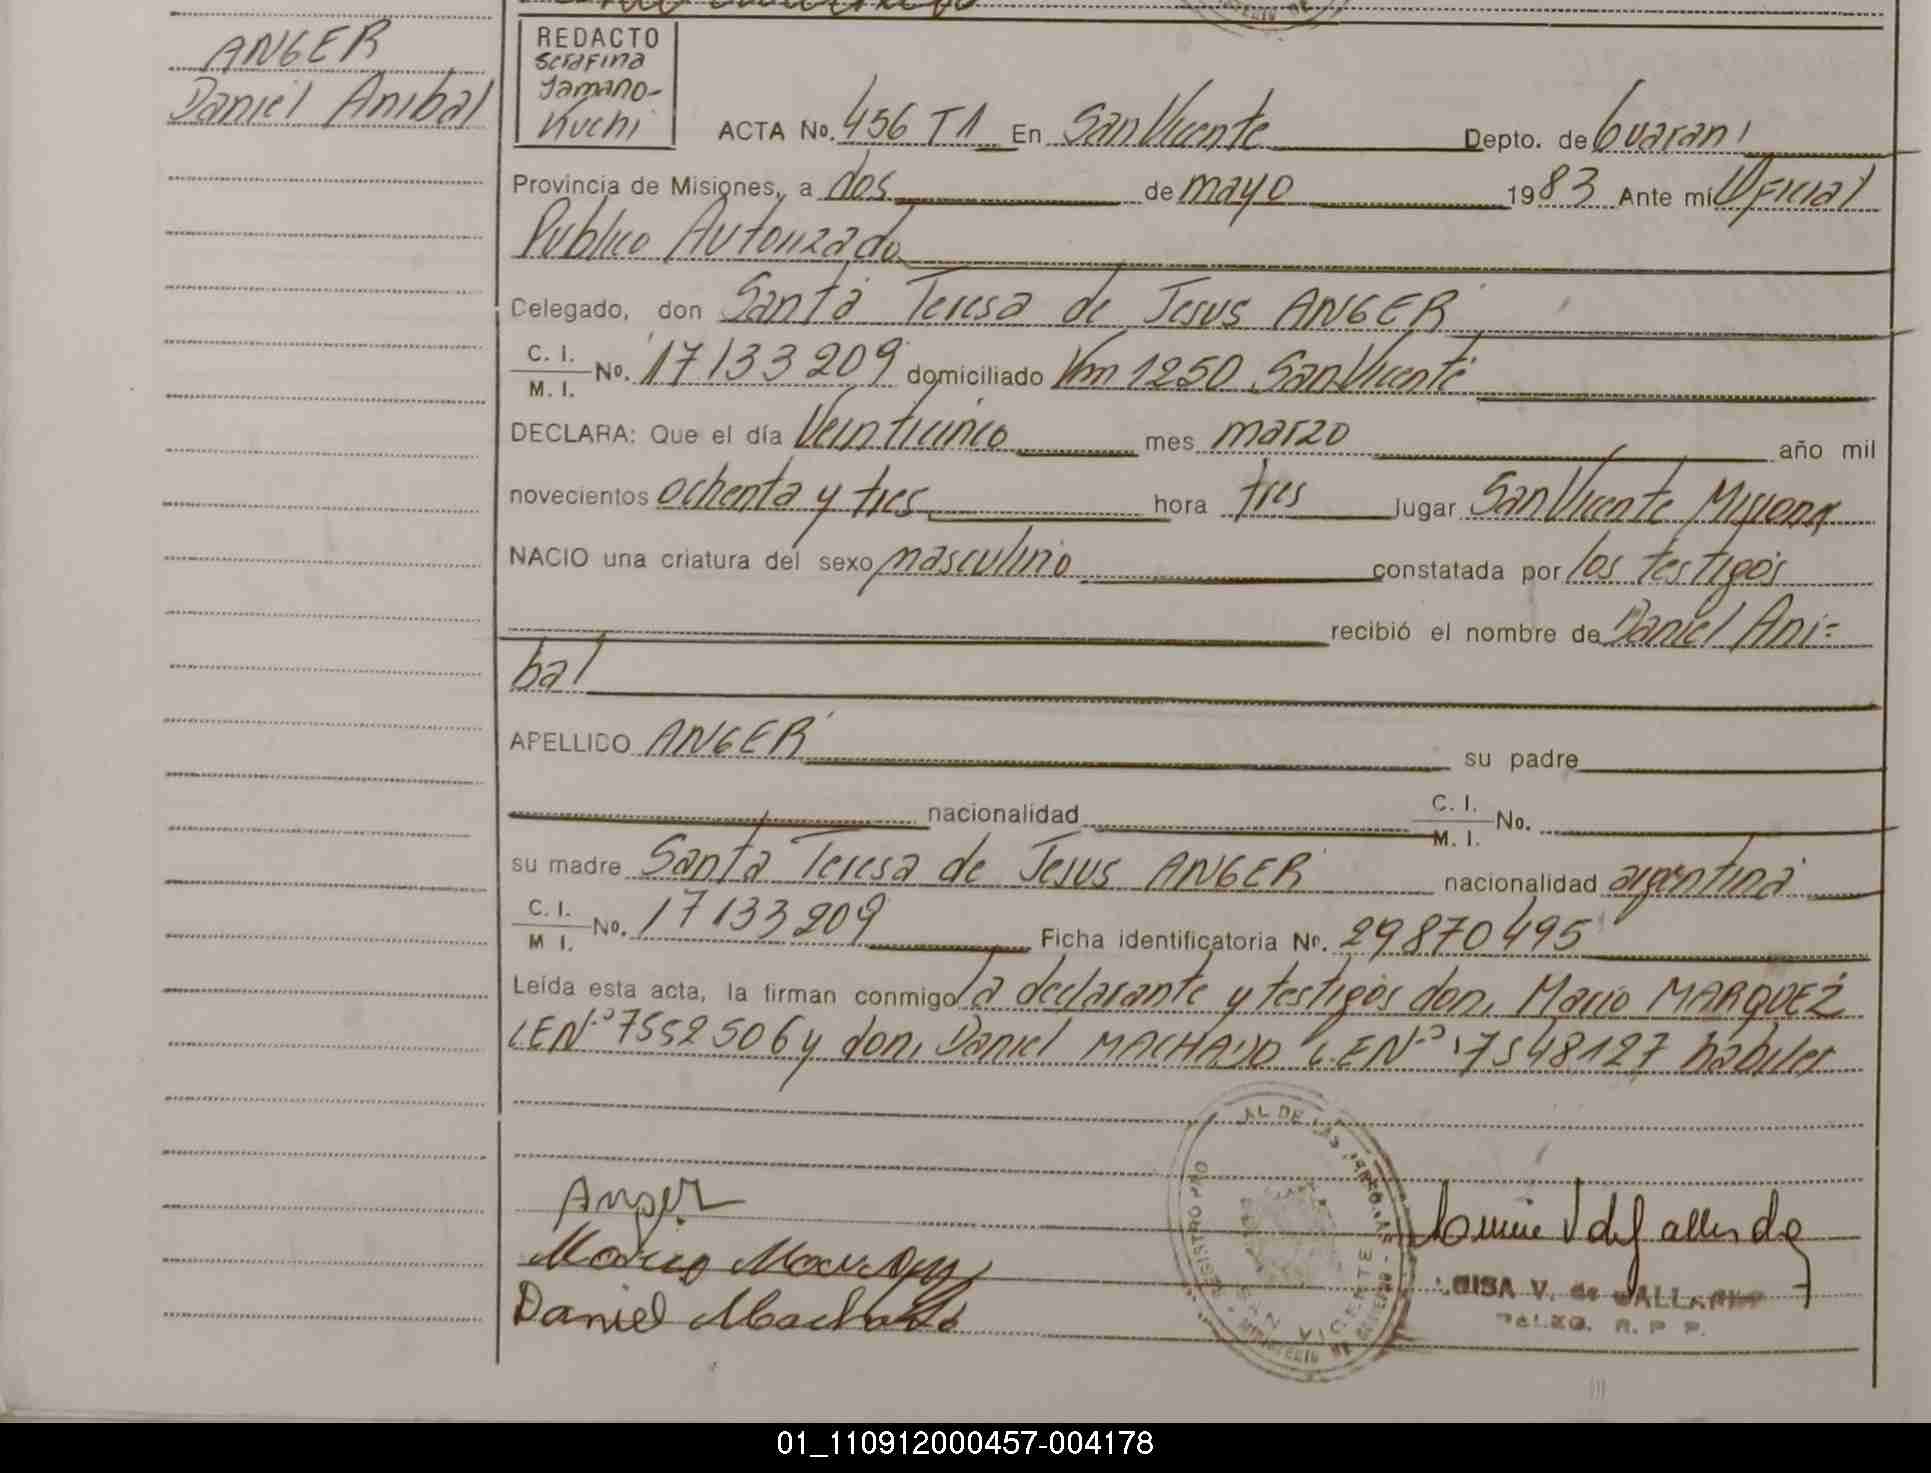 ANGER
Daniel Anibal
REDACTO
Serafina
Yamano-
Kuchi
ACTA No. 456 T1 En San Vicente Depto. de Guarani
Provincia de Misiones, a dos de mayo 1983 Ante mí Oficial
Publico Autorizado
Delegado, don Santa Teresa de Jesus ANGER
C. I.
M. I. No. 17133209 domiciliado Km 1250 San Vicente
DECLARA: Que el día Veinticinco mes marzo año mil
novecientos ochenta y tres hora tres lugar San Vicente Misiones
NACIO una criatura del sexo masculino constatada por los testigos
recibió el nombre de Daniel Ani=
bal
APELLIDO ANGER su padre
nacionalidad C. I.
M. I. No.
su madre Santa Teresa de Jesus ANGER nacionalidad argentina
C. I.
M I. No. 17133209 Ficha identificatoria No. 29870495
Leída esta acta, la firman conmigo la declarante y testigos don, Mario MARQUEZ
LEN.º 7552506 y don, Daniel MACHADO L.EN.º 7548127 habiles
Anger
Daniel Machado
SAN VICENTE
MINISTERIO DE GOBIERNO
V. de
R. P. P.
01_110912000457-004178